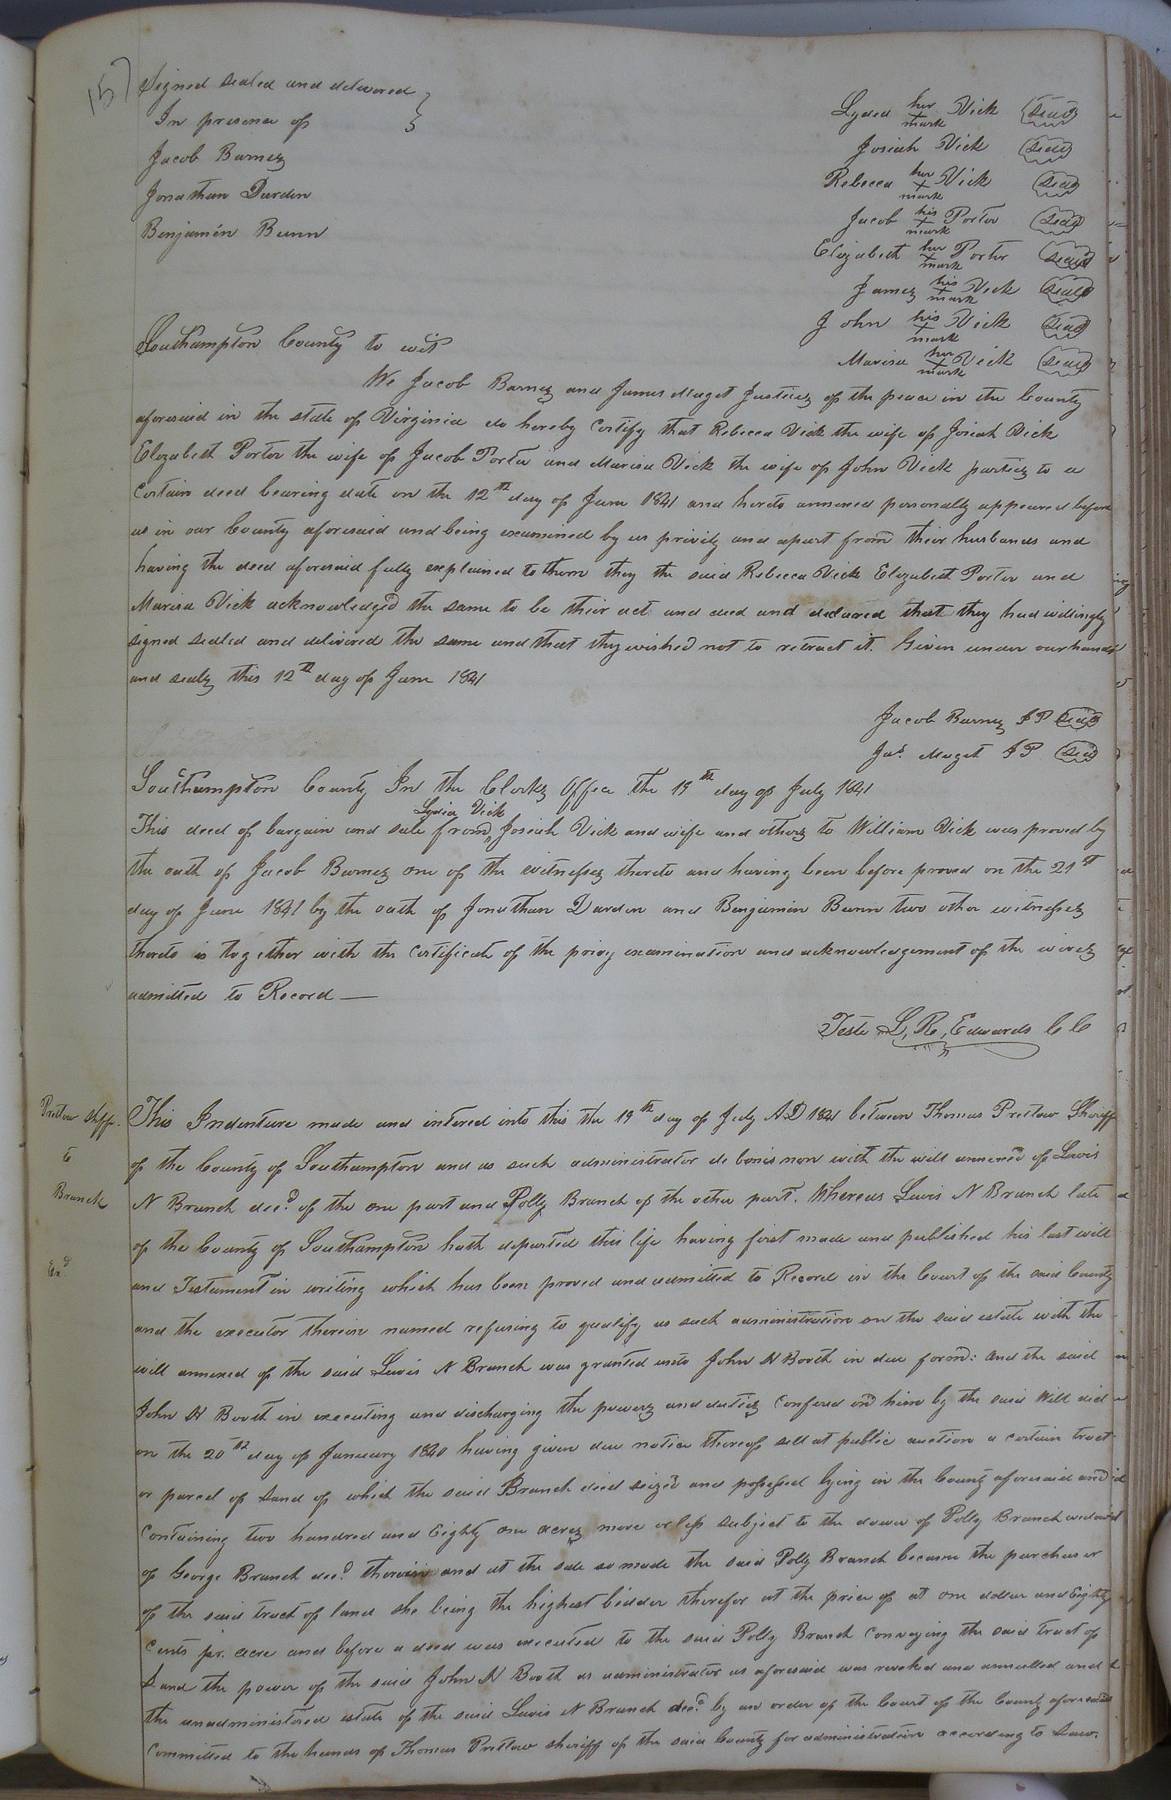 157
Signed sealed and delivered
In presence of
Jacob Barnes
Jonathan Darden
Benjamin Bunn
Lydia her + mark Vick Seal
Josiah Vick Seal
Rebecca her + mark Vick Seal
Jacob his + mark Porter Seal
Elizabeth her + mark Porter Seal
James his + mark Vick Seal
John his + mark Vick Seal
Marisa her + mark Vick Seal
Southampton County to wit
We Jacob Barnes and James Maget Justices of the peace in the County
aforesaid in the state of Virginia do hereby Certify that Rebecca Vick the wife of Josiah Vick
Elizabeth Porter the wife of Jacob Porter and Marisa Vick the wife of John Vick parties to a
Certain deed bearing date on the 12th day of June 1841 and hereto annexed personally appeared before
us in our County aforesaid and being examined by us privily and apart from their husbands and
having the deed aforesaid fully explained to them they the said Rebecca Vick Elizabeth Porter and
Marisa Vick acknowledged the same to be their act and deed and declared that they had willingly
signed sealed and delivered the same and that they wished not to retract it. Given under our hands
and seals this 12th day of June 1841
Jacob Barnes JP Seal
Jas. Maget JP Seal
Southampton County In the Clerks Office the 19th day of July 1841
This deed of bargain and sale from Lydia Vick Josiah Vick and wife and others to William Vick was proved by
the oath of Jacob Barnes one of the witnesses thereto and having been before proved on the 21st
day of June 1841 by the oath of Jonathan Darden and Benjamin Bunn two other witnesses
thereto is together with the Certificate of the privy examination and acknowledgement of the wives
admitted to Record —
Teste L, R, Edwards C C
Pretlow Shff.
to
Branch
Exd
This Indenture made and intered into this the 19th day of July AD 1841 between Thomas Pretlow Sheriff
of the County of Southampton and as such administrator de bonis non with the will annexed of Lewis
N Branch decd. of the one part and Polly Branch of the other part. Whereas Lewis N Branch late
of the County of Southampton hath departed this life having first made and published his last will
and Testament in writing which has been proved and admitted to Record in the Court of the said County
and the executor therein named refusing to qualify as such administration on the said estate with the
will annexed of the said Lewis N Branch was granted unto John N Booth in due form: and the said
John N Booth in executing and discharging the powers and duties Confered on him by the said Will did
on the 20th day of January 1840 having given due notice thereof sell at public auction a certain tract
or parcel of Land of which the said Branch died seized and possessed lying in the County aforesaid and
Containing two hundred and Eighty one acres more or less subject to the dower of Polly Branch widow
of George Branch decd. therein and at the sale so made the said Polly Branch became the purchaser
of the said tract of land she being the highest bidder therefor at the price of at one dollar and Eighty
Cents per. acre and before a deed was executed to the said Polly Branch Conveying the said tract of
Land the power of the said John N Booth as administrator as aforesaid was revoked and annulled and
the unadministered estate of the said Lewis N Branch decd. by an order of the Court of the County aforesaid
Committed to the hands of Thomas Pretlow sheriff of the said County for administration according to Law.